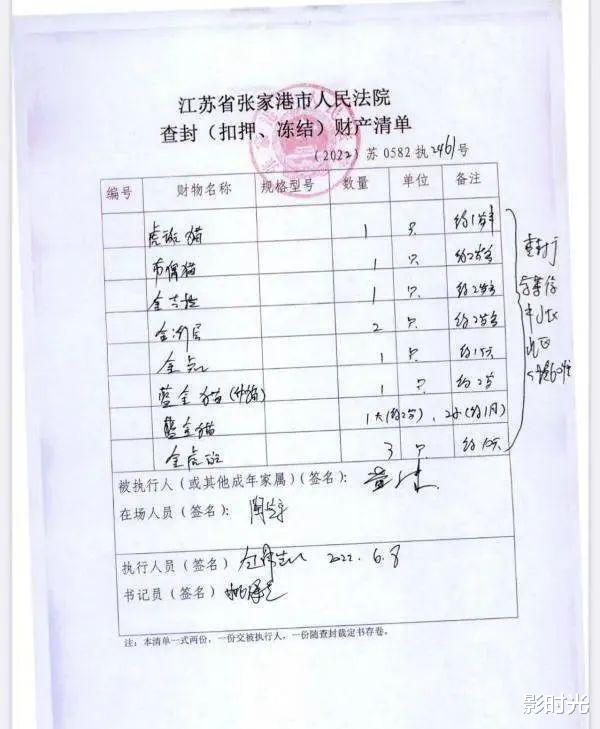 江苏省张家港市人民法院
查封（扣押、冻结）财产清单
（2022）苏 0582 执2461号
编号 财物名称 规格型号 数量 单位 备注
虎斑猫 1 只 约1岁半
布偶猫 1 只 约2岁多
金吉拉 1 只 约2岁多
金渐层 2 只 约2岁多
金点 1 只 约15天
蓝金猫 1 只 约2岁
蓝金猫 1大(约2岁)，2小(约1月)
金虎斑 3 只 约10天
查封于
被执行人（或其他成年家属）（签名）：
在场人员（签名）：
执行人员（签名） 2022.6.8
书记员（签名）
注：本清单一式两份，一份交被执行人，一份随查封裁定书存卷。
影时光